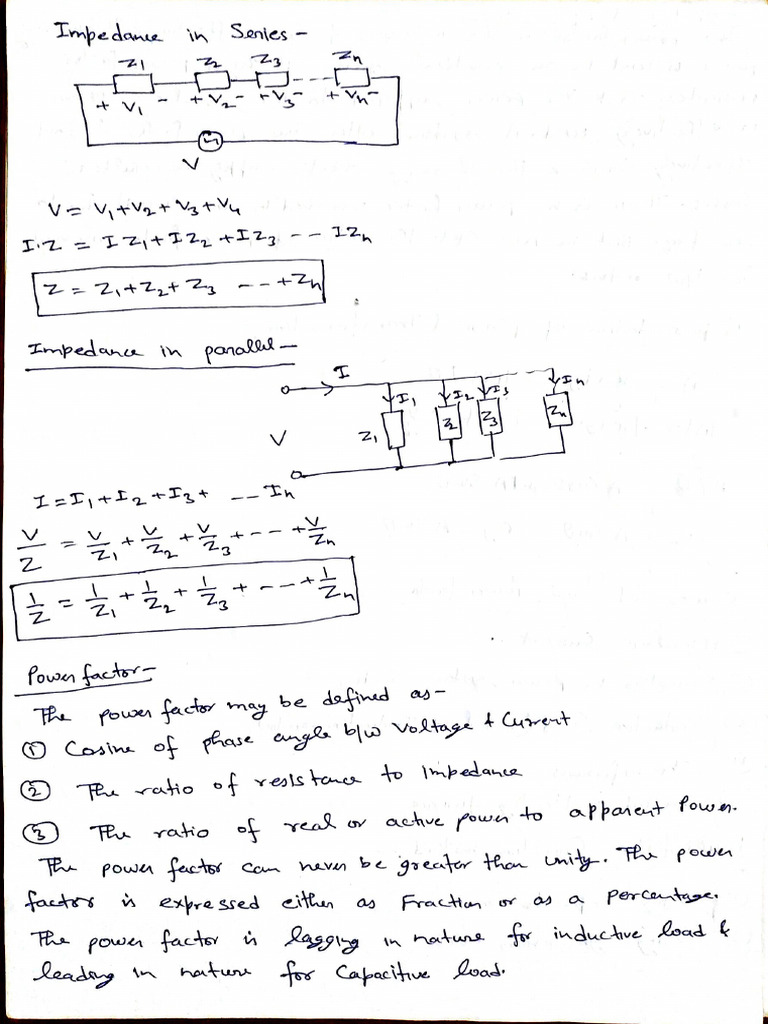 Impedance in Series -
Z1 Z2 Z3 Zn
+ V1 - + V2 - + V3 - + Vn -
V
V = V1 + V2 + V3 + V4
I·Z = IZ1 + IZ2 + IZ3 -- IZn
Z = Z1 + Z2 + Z3 --- + Zn
Impedance in parallel -
I
I1 I2 I3 In
V Z1 Z2 Z3 Zn
I = I1 + I2 + I3 + --- In
V/Z = V/Z1 + V/Z2 + V/Z3 + --- + V/Zn
1/Z = 1/Z1 + 1/Z2 + 1/Z3 + --- + 1/Zn
Power factor -
The power factor may be defined as -
① Cosine of phase angle b/w Voltage & Current
② The ratio of resistance to Impedance
③ The ratio of real or active power to apparent Power.
The power factor can never be greater than unity. The power
factor is expressed either as Fraction or as a percentage.
The power factor is lagging in nature for inductive load &
leading in nature for Capacitive load.